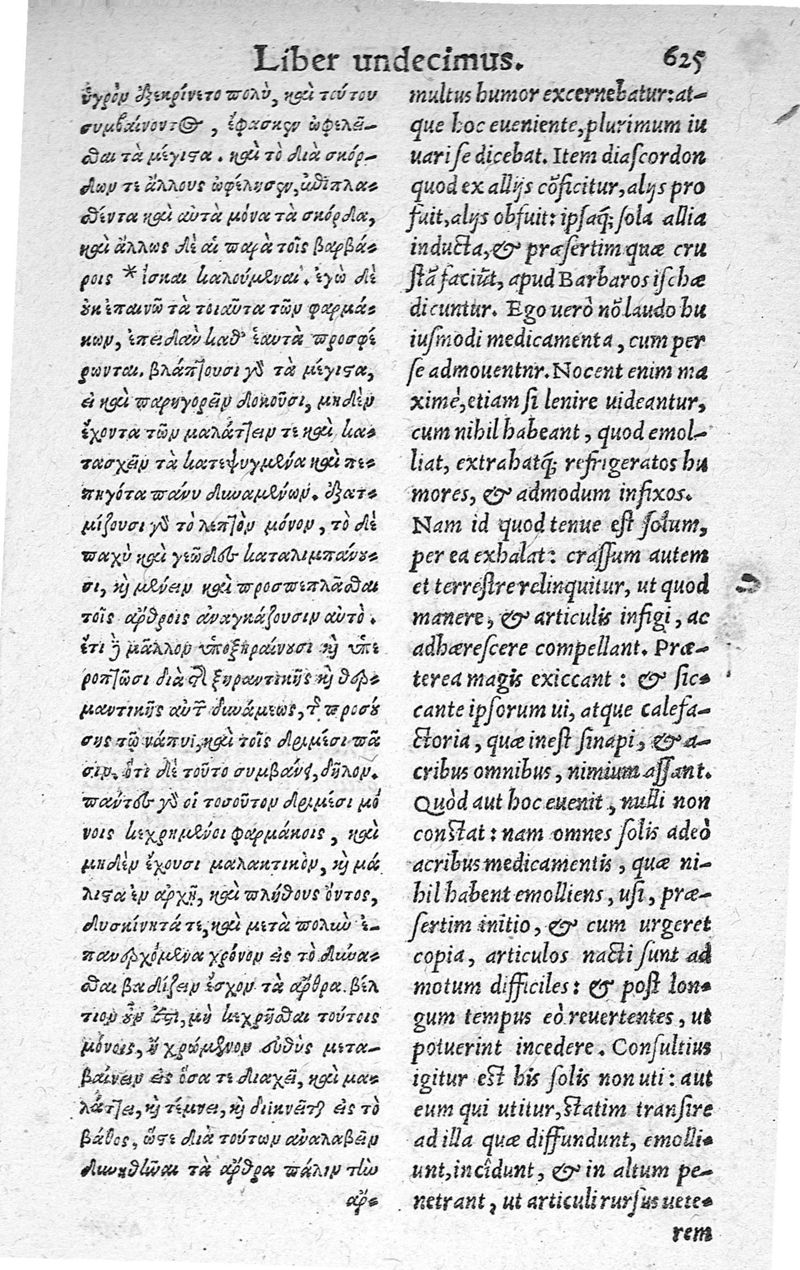 Liber undecimus. 625
ὑγρὸν ἐξεκρίνετο πολὺ, καὶ τούτου
συμβαίνοντος, ἔφασκεν ὠφελεῖ-
σθαι τὰ μέγιστα. καὶ τὸ διὰ σκόρ-
δων τε ἄλλους ὠφέλησεν,
θέντα καὶ αὐτὰ μόνα τὰ σκόρδα,
καὶ ἄλλως δὲ αἱ παρὰ τοῖς βαρβά-
ροις * ἴσκαι καλούμεναι. ἐγὼ δὲ
οὐκ ἐπαινῶ τὰ τοιαῦτα τῶν φαρμά-
κων, ἐπειδὰν καθ' ἑαυτὰ προσφέ
ρωνται. βλάπτουσι γὰρ τὰ μέγιστα,
εἰ καὶ παρηγορεῖν δοκοῦσι, μηδὲν
ἔχοντα τῶν μαλάττειν τε καὶ κα-
τασχεῖν τὰ κατεψυγμένα καὶ πε-
πηγότα πάνυ δυναμένων. ἐξατ-
μίζουσι γὰρ τὸ λεπτὸν μόνον, τὸ δὲ
παχὺ καὶ γεῶδες καταλιμπάνου-
σι, καὶ μένειν καὶ προσπεπλᾶσθαι
τοῖς ἄρθροις ἀναγκάζουσιν αὐτό.
ἔτι δὲ μᾶλλον ὑποξηραίνουσι καὶ ὑπε
ροπτῶσι διὰ τῆς ξηραντικῆς καὶ θερ-
μαντικῆς αὐτῶν δυνάμεως, τῆς προσού
σης τῷ νάπυι, καὶ τοῖς δριμέσι πᾶ
σιν. ὅτι δὲ τοῦτο συμβαίνει, δῆλον.
πάντες γὰρ οἱ τοσοῦτον δριμέσι μό
νοις κεχρημένοι φαρμάκοις, καὶ
μηδὲν ἔχουσι μαλακτικὸν, καὶ μά
λιστα ἐν ἀρχῇ, καὶ πλήθους ὄντος,
δυσκίνητά τε, καὶ μετὰ πολὺν ἐ-
πανερχόμενα χρόνον εἰς τὸ δύνα-
σθαι βαδίζειν ἔσχον τὰ ἄρθρα. βέλ
τιον οὖν ἐστι, μὴ κεχρῆσθαι τούτοις
μόνοις, ἢ χρώμενον εὐθὺς μετα-
βαίνειν εἰς ὅσα τε διαχεῖ, καὶ μα-
λάττει, καὶ τέμνει, καὶ διικνεῖται εἰς τὸ
βάθος, ὥστε διὰ τούτων ἀναλαβεῖν
δυνηθῆναι τὰ ἄρθρα πάλιν τὴν
ἀρ-
multus humor excernebatur: at-
que hoc eueniente, plurimum iu
uari se dicebat. Item diascordon
quod ex allijs cōficitur, alijs pro
fuit, alijs obfuit: ipsaq; sola allia
inducta, & præsertim quæ cru
stā faciūt, apud Barbaros ischæ
dicuntur. Ego uerò nō laudo hu
iusmodi medicamenta, cum per
se admouentnr. Nocent enim ma
ximè, etiam si lenire uideantur,
cum nihil habeant, quod emol-
liat, extrahatq; refrigeratos hu
mores, & admodum infixos.
Nam id quod tenue est solum,
per ea exhalat: crassum autem
et terrestre relinquitur, ut quod
manere, & articulis infigi, ac
adhærescere compellant. Præ-
terea magis exiccant: & sic-
cante ipsorum ui, atque calefa-
ctoria, quæ inest sinapi, & a-
cribus omnibus, nimium assant.
Quòd aut hoc euenit, nulli non
constat: nam omnes solis adeò
acribus medicamentis, quæ ni-
hil habent emolliens, usi, præ-
sertim initio, & cum urgeret
copia, articulos nacti sunt ad
motum difficiles: & post lon-
gum tempus eò reuertentes, ut
potuerint incedere. Consultius
igitur est his solis non uti: aut
eum qui utitur, statim transire
ad illa quæ diffundunt, emolli-
unt, incîdunt, & in altum pe-
netrant, ut articuli rursus uete-
rem